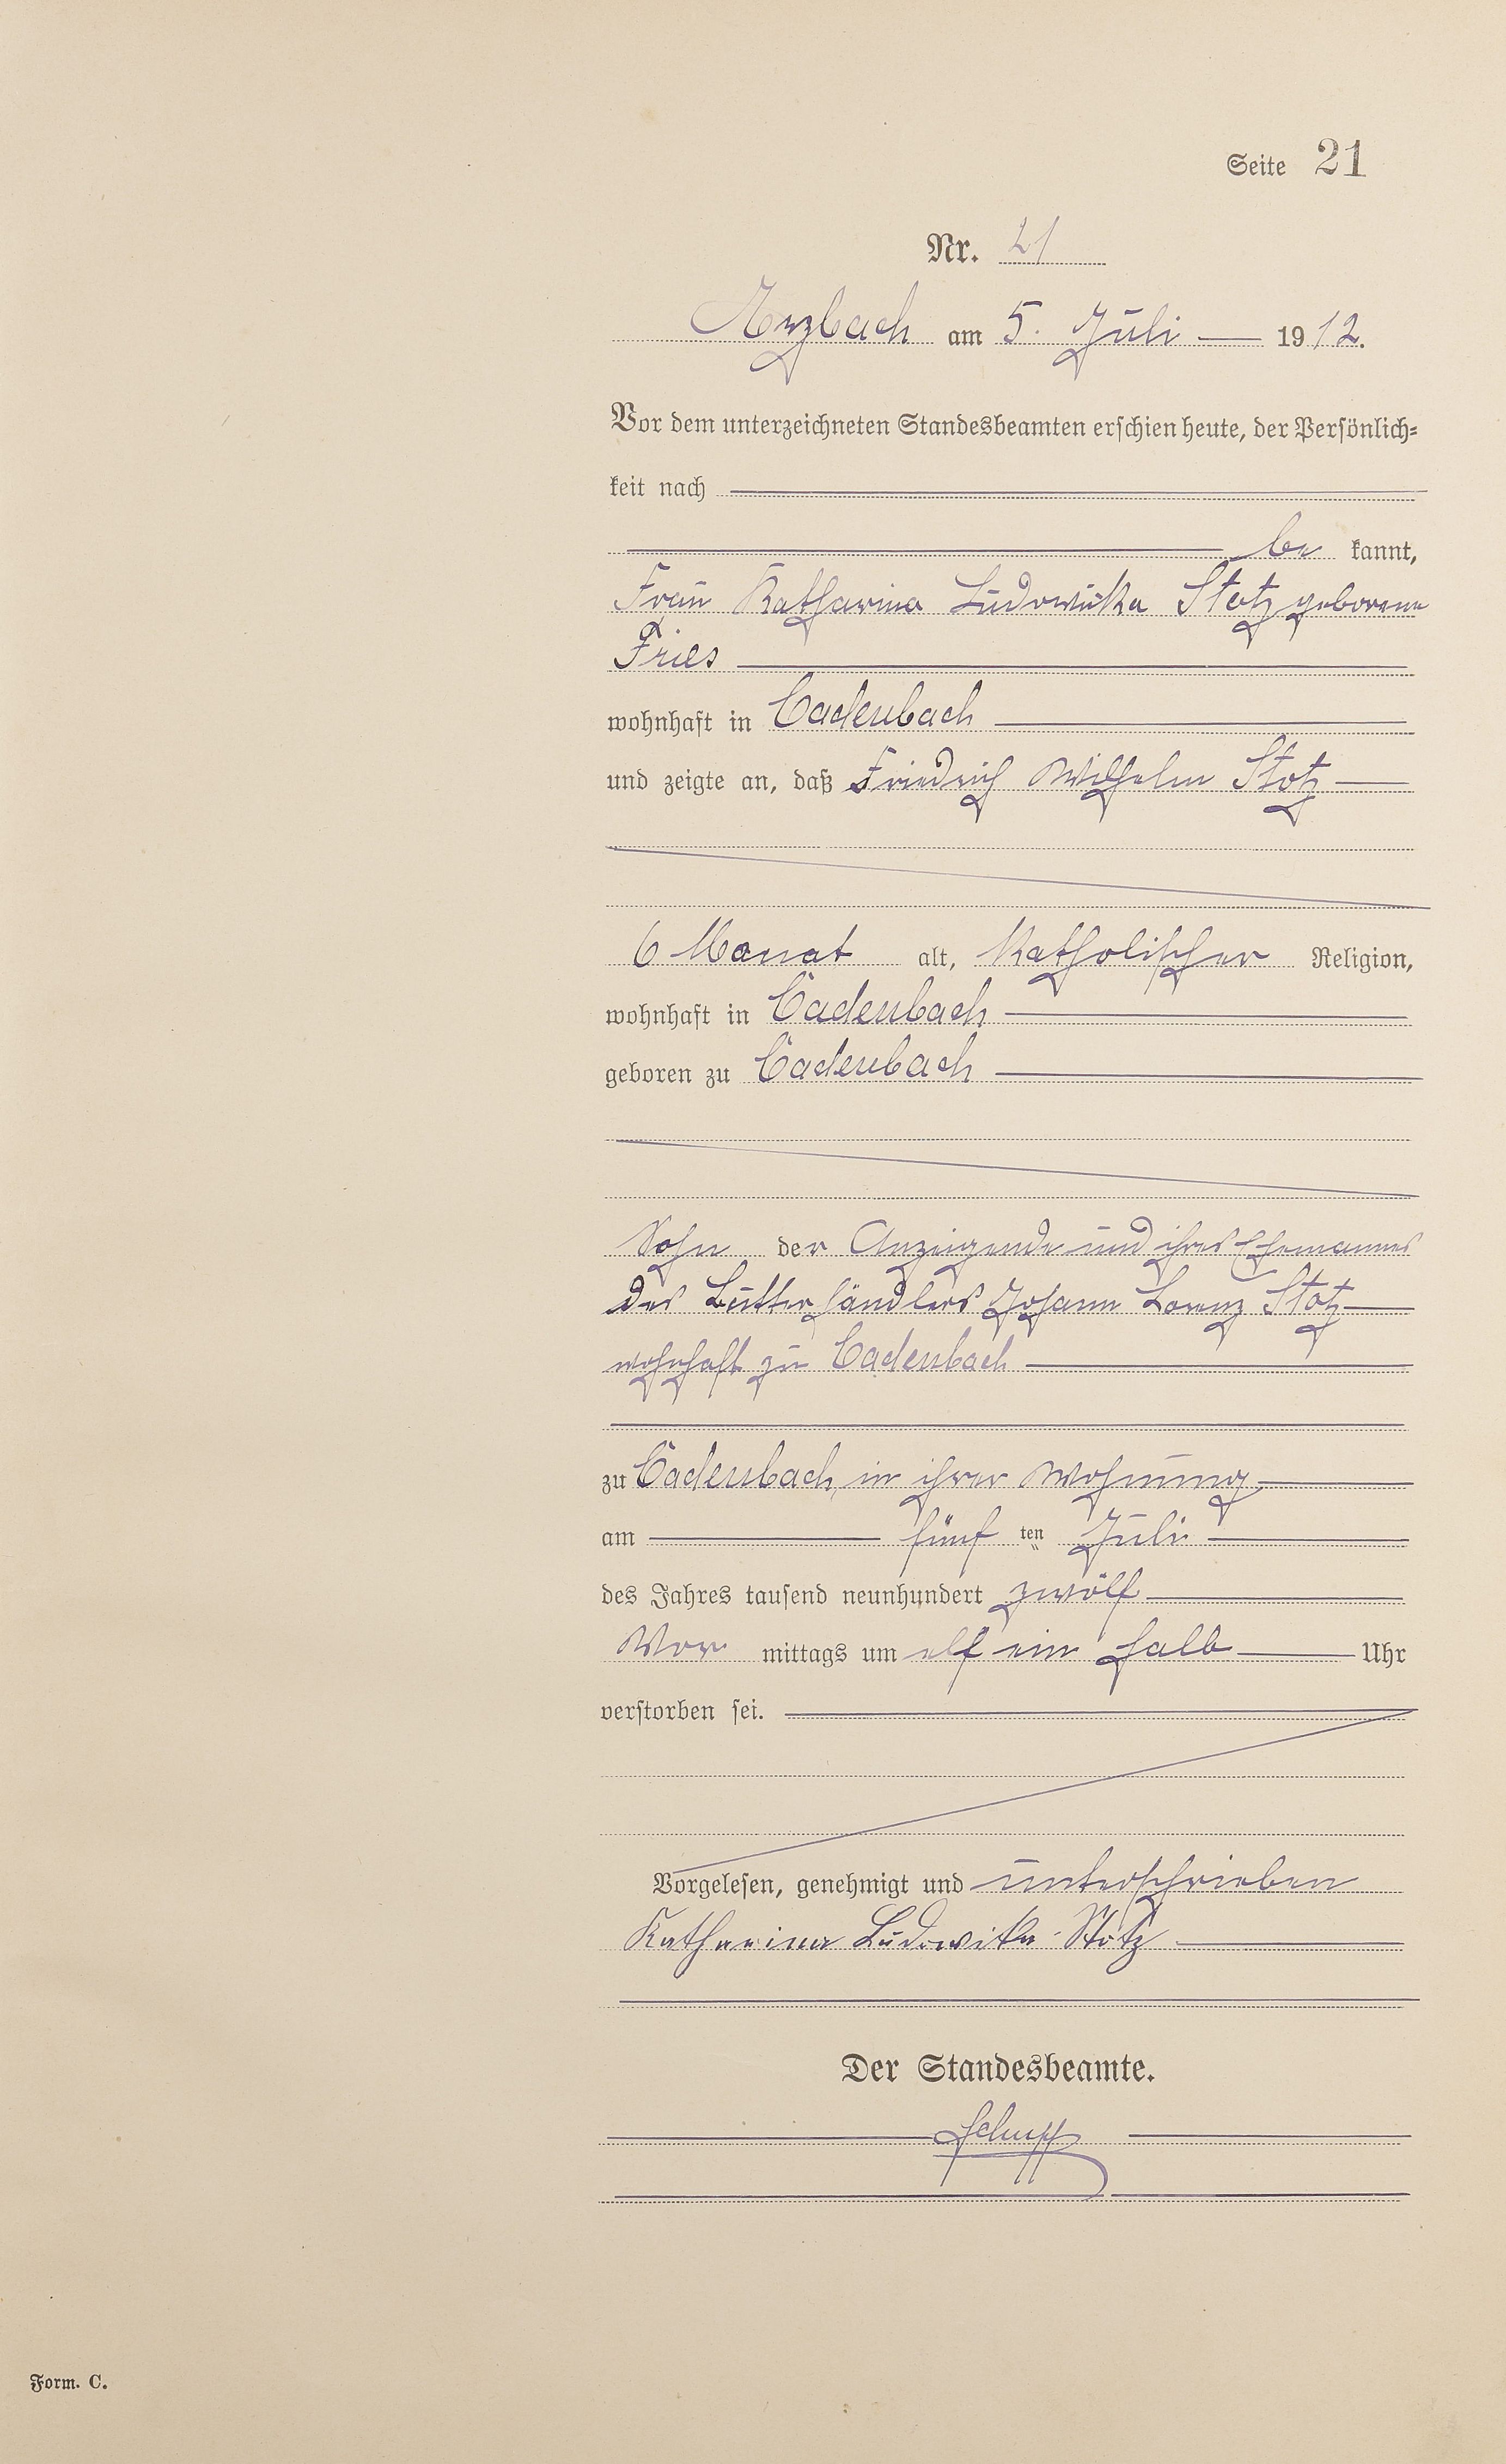 Seite 21
Nr. 21
Arzbach am 5. Juli 1912.
Vor dem unterzeichneten Standesbeamten erschien heute, der Persönlich=
keit nach
be kannt,
Frau Katharina Ludowika Stotz geborene
Fries
wohnhaft in Cadenbach
und zeigte an, daß Friedrich Wilhelm Stotz
6 Monat alt, katholischer Religion,
wohnhaft in Cadenbach
geboren zu Cadenbach
Sohn der Anzeigende und ihres Ehemannes
des Butterhändlers Johann Lorenz Stotz
wohnhaft zu Cadenbach
zu Cadenbach, in ihrer Wohnung
am fünf ten Juli
des Jahres tausend neunhundert zwölf
Vor mittags um elf ein halb Uhr
verstorben sei.
Vorgelesen, genehmigt und unterschrieben
Katharina Ludowika Stotz
Der Standesbeamte.
Schupp
Form. C.